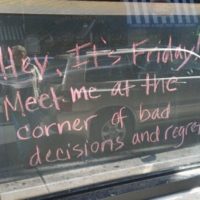 Hey, It's Friday!
Meet me at the
corner of bad
decisions and regre